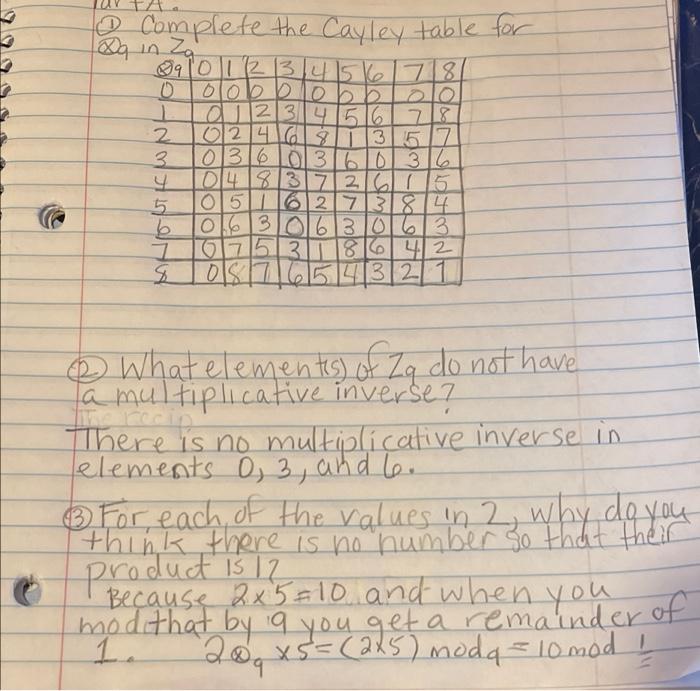 ① Complete the Cayley table for
⊗9 in Z9
⊗9 0 1 2 3 4 5 6 7 8
0 0 0 0 0 0 0 0 0 0
1 0 1 2 3 4 5 6 7 8
2 0 2 4 6 8 1 3 5 7
3 0 3 6 0 3 6 0 3 6
4 0 4 8 3 7 2 6 1 5
5 0 5 1 6 2 7 3 8 4
6 0 6 3 0 6 3 0 6 3
7 0 7 5 3 1 8 6 4 2
8 0 8 7 6 5 4 3 2 1
② What element(s) of Z9 do not have
a multiplicative inverse?
The recip
There is no multiplicative inverse in
elements 0, 3, and 6.
③ For each of the values in 2, why do you
think there is no number so that their
product is 1?
Because 2x5=10 and when you
mod that by 9 you get a remainder of
1. 2⊗9 x5=(2x5) mod9 = 10 mod 1